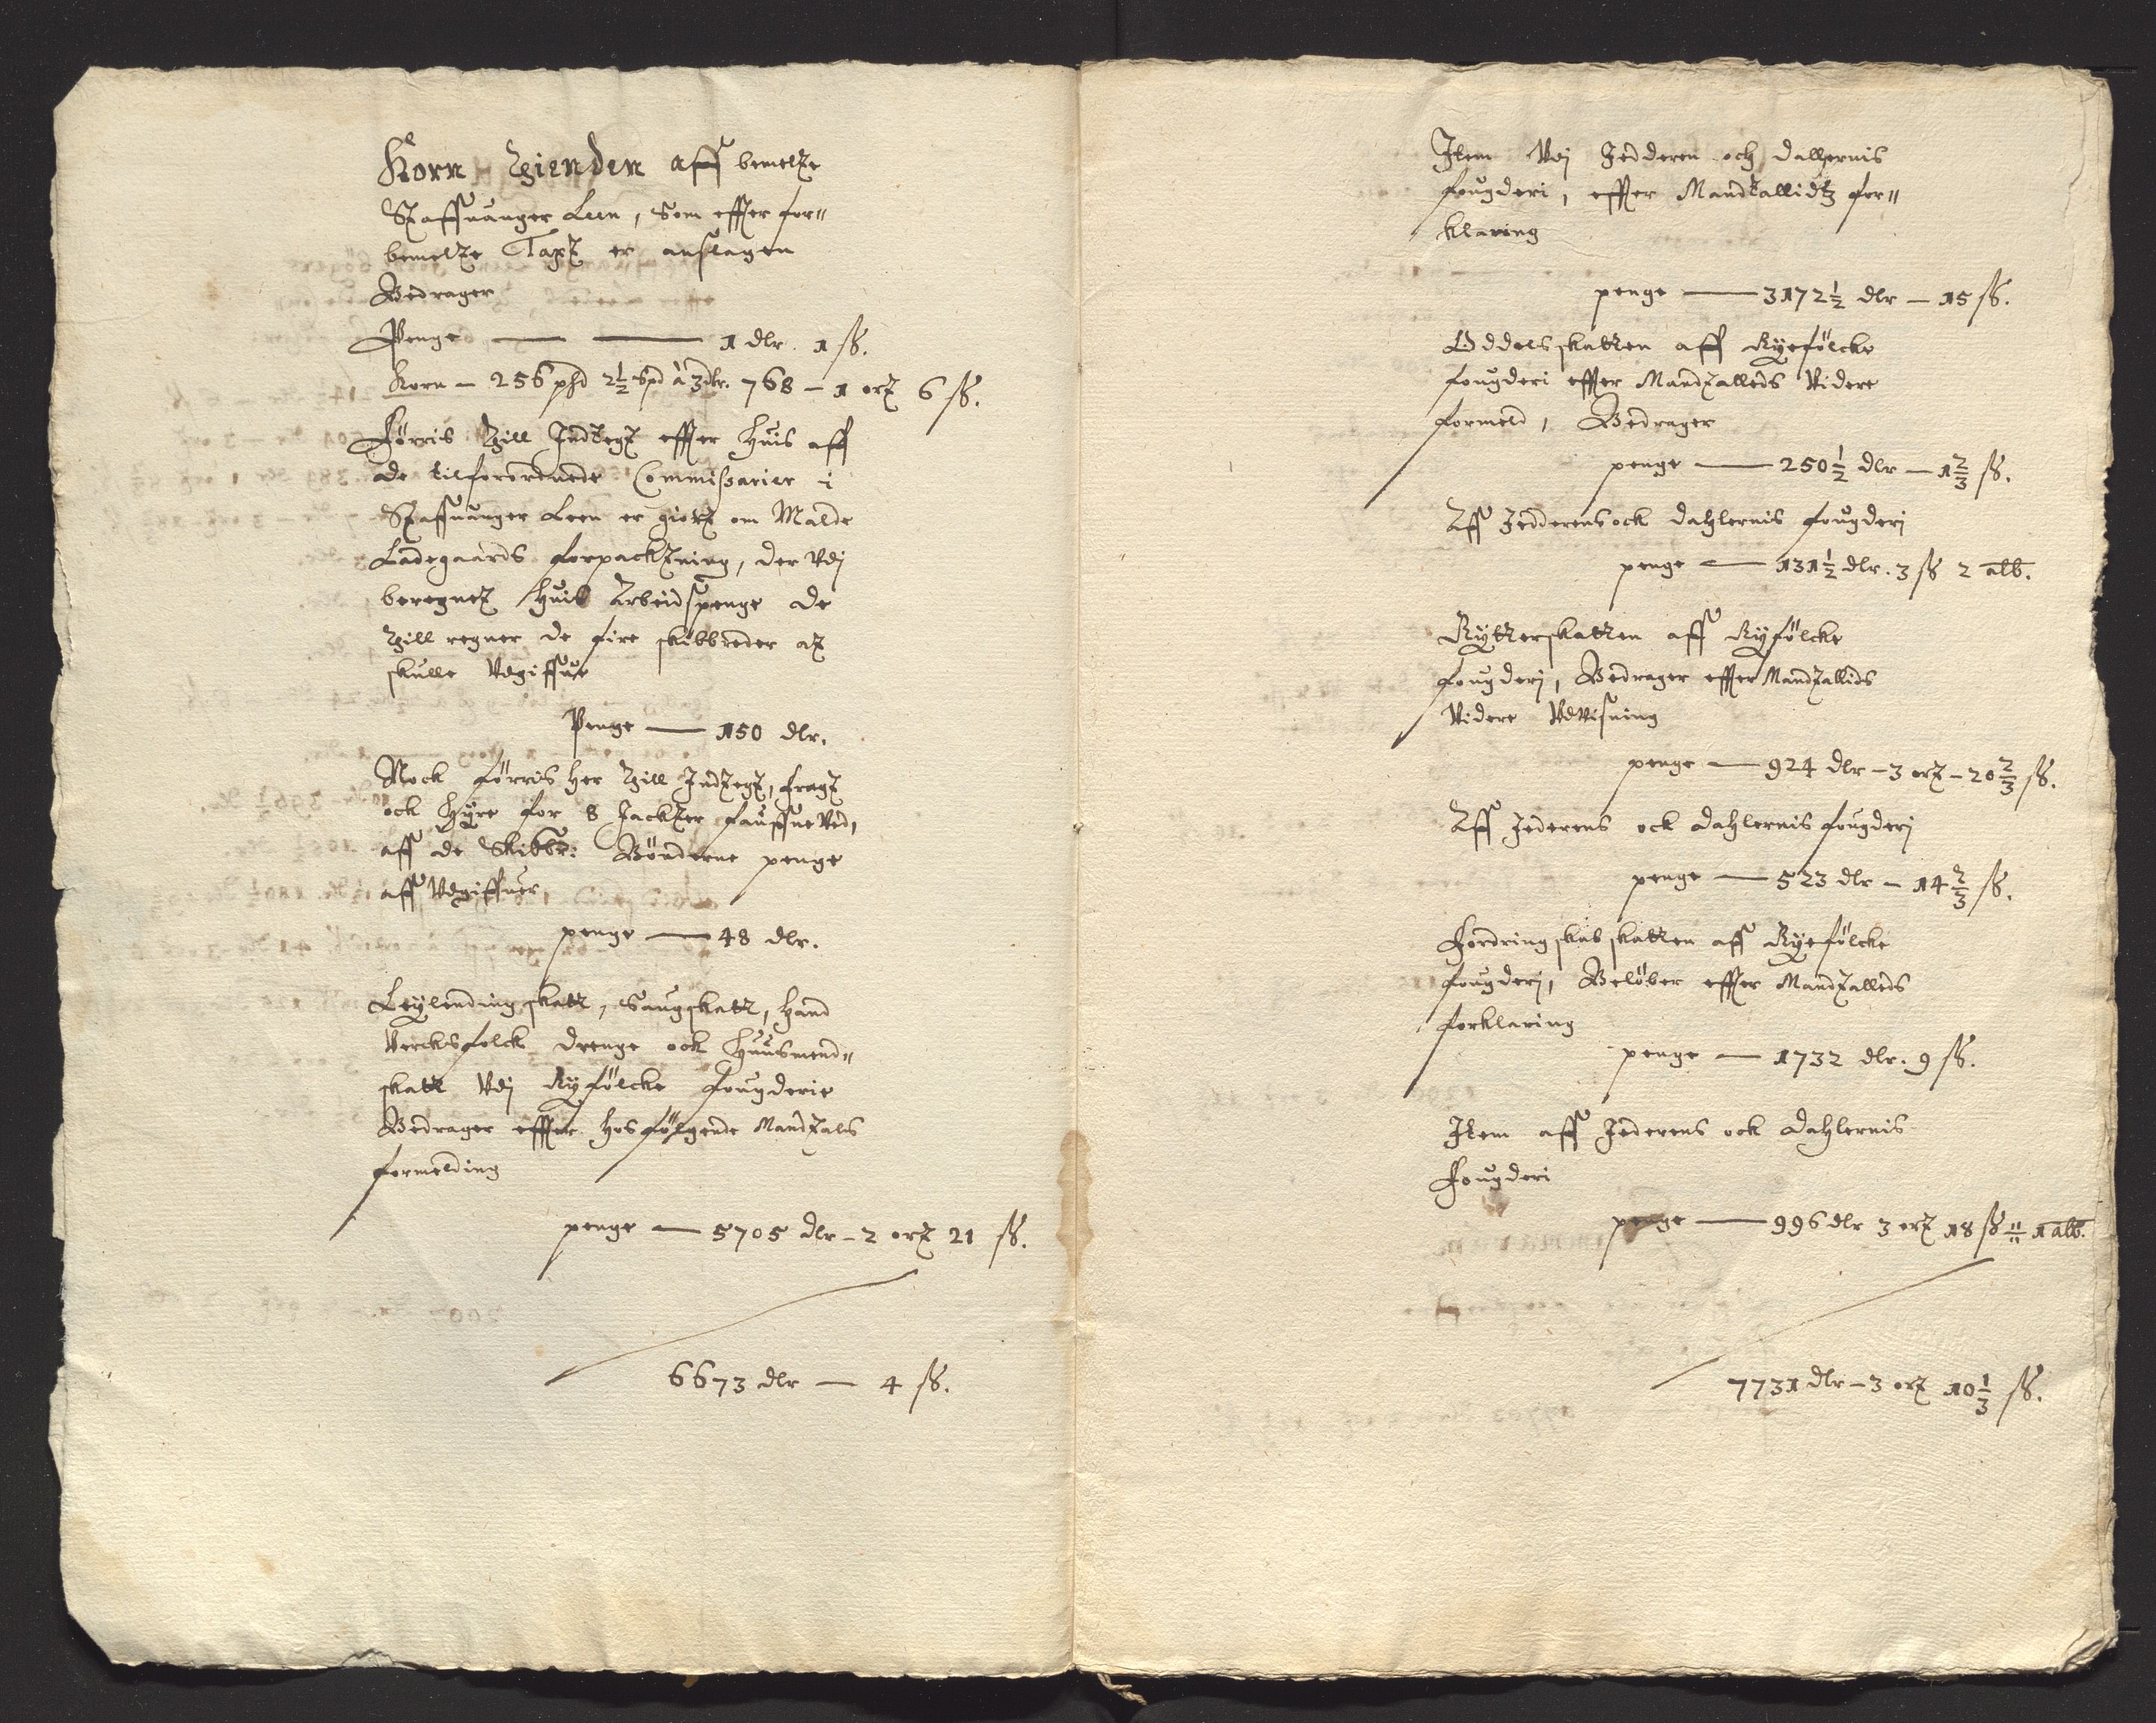 Korn Tienden aff bemelte
Staffuanger Leen, som effter for=
bemelte Taxt er anslagen
Bedrager
Penge — — 1 dlr. 1 ß.
Korn – 256 phd 2½ spd à 3 dlr. 768 – 1 ort 6 ß.
Førris till Indtegt effter huis aff
de tilforordnede Commissarier i
Staffuanger Leen er giort om Malde
Ladegaards forpacktning, der Vdj
beregnet huis Arbeidspenge de
till regner de fire skibbreder at
skulle Vdgiffue
Penge — 150 dlr.
Nock førris her till Indtegt, fragt
ock hyre for 8 Jackter fauffne Ved,
aff de Skibbr: Bønderne penge
aff Vdgiffuer
penge — 48 dlr.
Leylending skatt, Saugskatt, hand
Vercksfolck drenge ock huusmend=
skatt Vdj Ryfølcke fougderie
Bedrager effter hosfølgende Mandtals
formelding
penge — 5705 dlr – 2 ort 21 ß.
6673 dlr — 4 ß.
Item Vdj Jedderen och dallernis
fougderi, effter Mandtallidtz for=
klaring
penge — 3172½ dlr – 15 ß.
Oddelsskatten aff Ryefølcke
fougderi effter Mandtalleds Videre
formeld, Bedrager
penge — 250½ dlr – 1⅔ ß.
Aff Jedderens ock dahlernis fougderj
penge — 131½ dlr. 3 ß 2 alb.
Rytterskatten aff Ryfølcke
fougderj, Bedrager effter Mandtallids
Videre Vdvisning
penge — 924 dlr – 3 ort – 20⅔ ß.
Aff Jederens ock dahlernis fougderj
penge — 523 dlr – 14⅔ ß.
Fordringskab skatten aff Ryefølcke
fougderj, Beløber effter Mandtalleds
forklaring
penge — 1732 dlr. 9 ß.
Item aff Jederens ock dahlernis
Fougderi
penge — 996 dlr 3 ort 18 ß 1 alb.
7731 dlr – 3 ort 10⅓ ß.